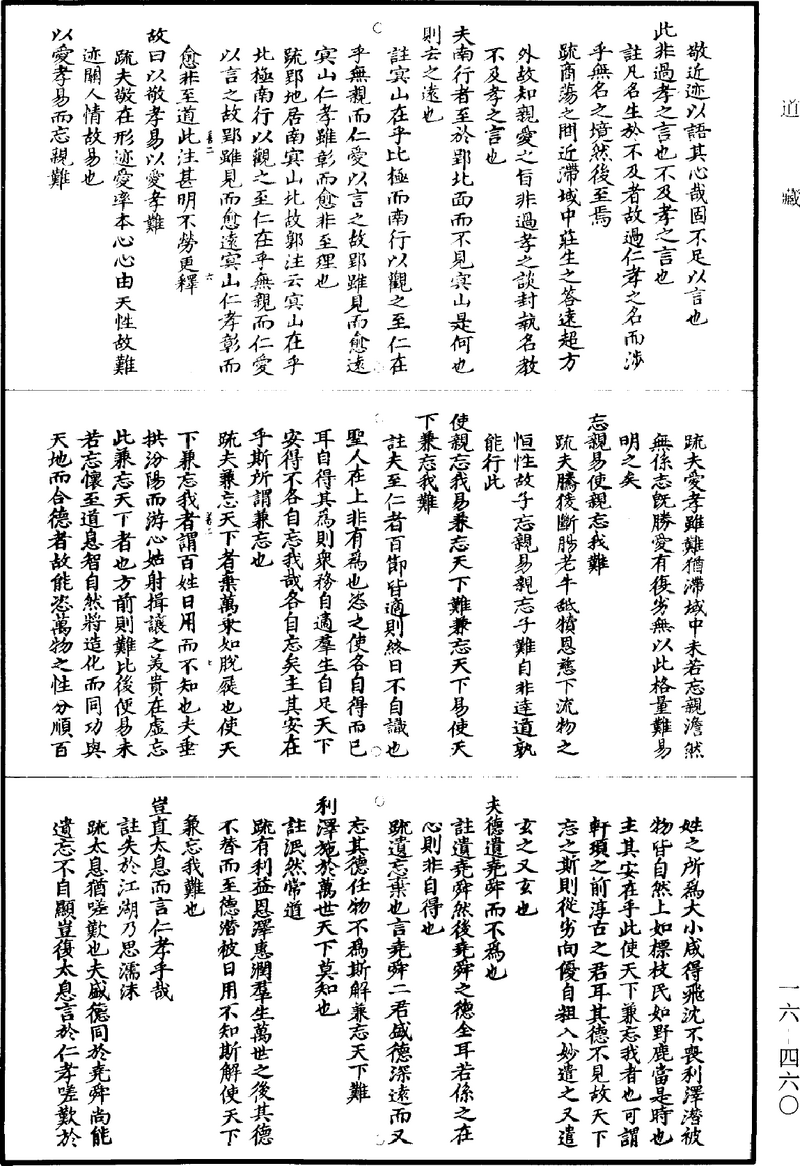 道藏
敬近迹以語其心哉固不足以言也
此非過孝之言也不及孝之言也
註凡名生於不及者故過仁孝之名而涉
乎無名之境然後至焉
疏商蕩之問近滯域中莊生之答遠超方
外故知親愛之旨非過孝之談封執名教
不及孝之言也
夫南行者至於郢北面而不見冥山是何也
則去之遠也
註冥山在乎北極而南行以觀之至仁在
乎無親而仁愛以言之故郢雖見而愈遠
冥山仁孝雖彰而愈非至理也
疏郢地居南冥山北故郭注云冥山在乎
北極南行以觀之至仁在乎無親而仁愛
以言之故郢雖見而愈遠冥山仁孝彰而
愈非至道此注甚明不勞更釋
故曰以敬孝易以愛孝難
疏夫敬在形迹愛率本心心由天性故難
迹關人情故易也
以愛孝易而忘親難
疏夫愛孝雖難猶滯域中未若忘親澹然
無係忘既勝愛有復劣無以此格量難易
明之矣
忘親易使親忘我難
疏夫騰猨斷腸老牛舐犢恩慈下流物之
恒性故子忘親易親忘子難自非達道孰
能行此
使親忘我易兼忘天下難兼忘天下易使天
下兼忘我難
註夫至仁者百節皆適則終日不自識也
聖人在上非有為也恣之使各自得而已
耳自得其為則衆務自適羣生自足天下
安得不各自忘我哉各自忘矣主其安在
乎斯所謂兼忘也
疏夫兼忘天下者棄萬乘如脫屣也使天
下兼忘我者謂百姓日用而不知也夫垂
拱汾陽而游心姑射揖讓之美貴在虛忘
此兼忘天下者也方前則難比後便易未
若忘懷至道息智自然將造化而同功與
天地而合德者故能恣萬物之性分順百
姓之所為大小咸得飛沈不喪利澤潛被
物皆自然上如標枝民如野鹿當是時也
主其安在乎此使天下兼忘我者也可謂
軒頊之前淳古之君耳其德不見故天下
忘之斯則從劣向優自粗入妙遣之又遣
玄之又玄也
夫德遺堯舜而不為也
註遺堯舜然後堯舜之德全耳若係之在
心則非自得也
疏遺忘棄也言堯舜二君盛德深遠而又
忘其德任物不為斯解兼忘天下難
利澤施於萬世天下莫知也
註泯然常道
疏有利益恩澤惠潤羣生萬世之後其德
不替而至德潛被日用不知斯解使天下
兼忘我難也
豈直太息而言仁孝乎哉
註失於江湖乃思濡沫
疏太息猶嗟歎也夫盛德同於堯舜尚能
遺忘不自顯豈復太息言於仁孝嗟歎於
一六－四六〇